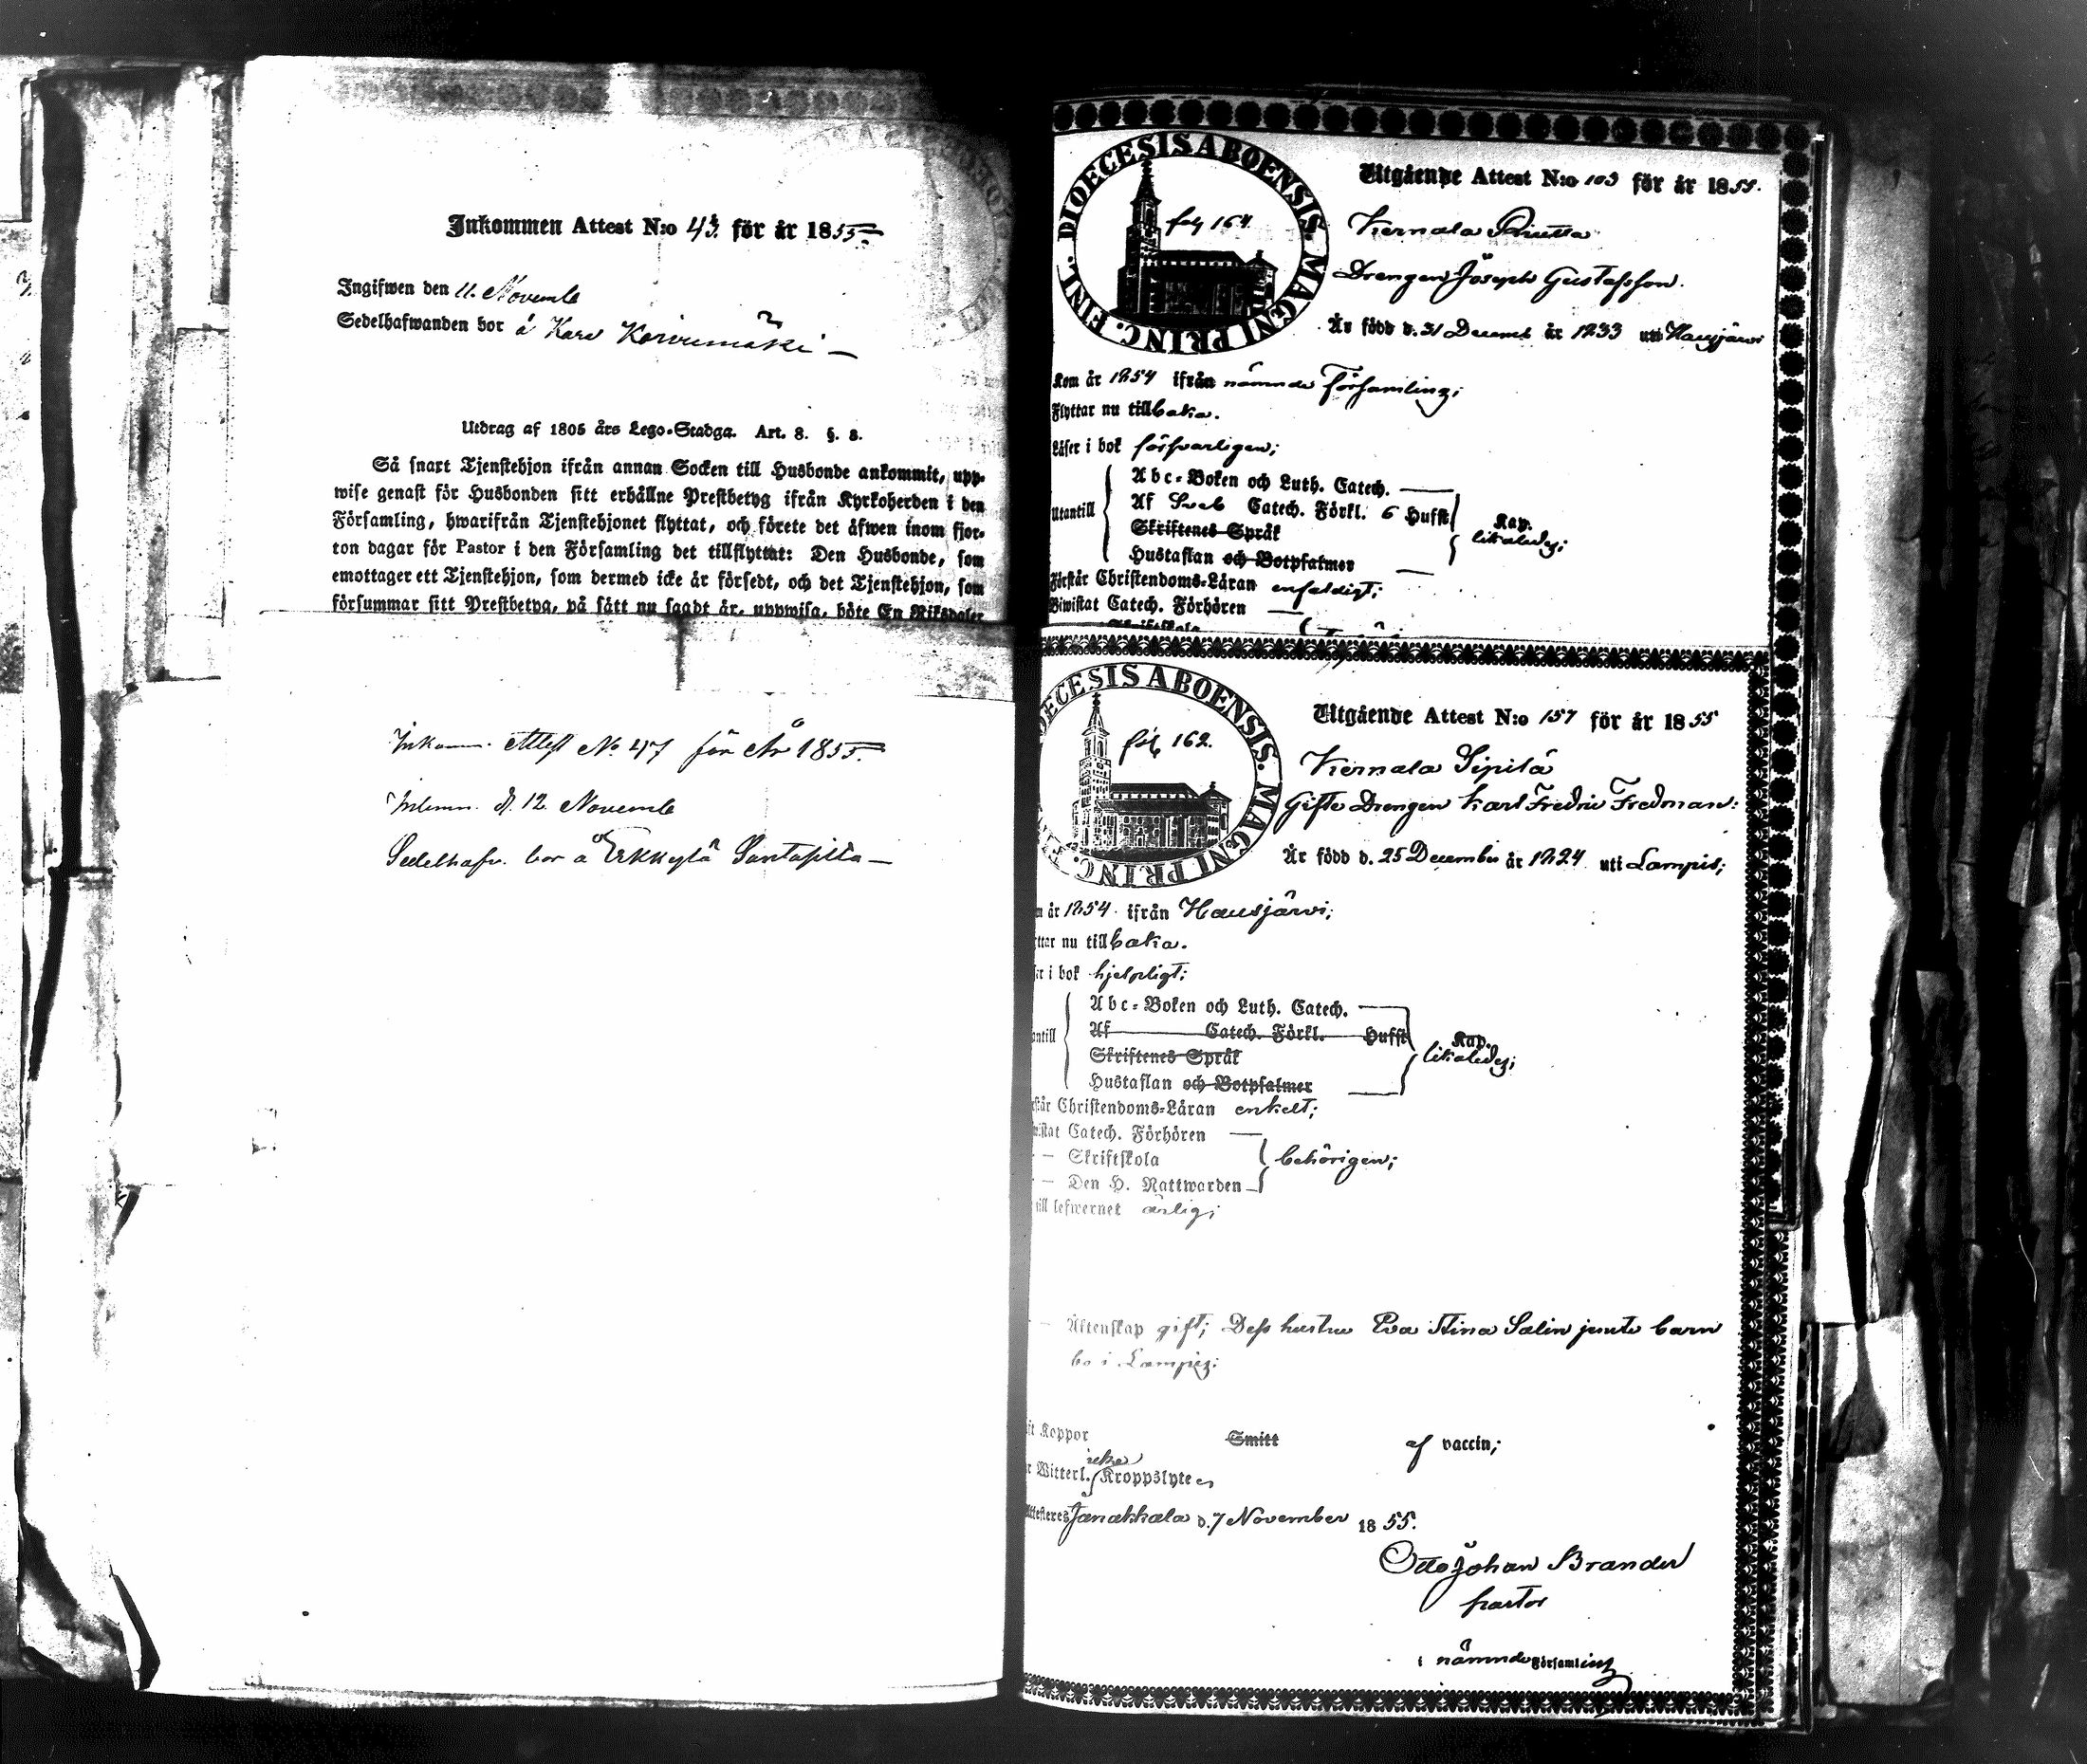 Inkommen Attest N:o 43. för år 1855.
Ingifwen den 11. Novemb
Sedelhafwanden bor å Karo Koivumäki
Utdrag af 1805 års Lego-Stadga. Art. 8. §. 8.
Så snart Tjenstehjon ifrån annan Socken till Husbonde ankommit, upp-
wise genast för Husbonden sitt erhållne Prestbetyg ifrån Kyrkoherden i den
Församling, hwarifrån Tjenstehjonet flyttat, och förete det äfwen inom fjor-
ton dagar för Pastor i den Församling det tillflyttat: Den Husbonde, som
emottager ett Tjenstehjon, som dermed icke är försedt, och det Tjenstehjon, som
försummar sitt Prestbetyg, på sätt nu sagdt är, uppwisa, böte En Riksdaler
Inkomm. Attest No 47 för År 1855.
Inlemn. d. 12 Novemb
Sedelhafv. bor å Erkkylä Santapilla
DIOECESIS ABOENSIS. MAGNI PRINC. FINL.
fol, 164.
Utgående Attest N:o 103 för år 1855.
Kernala
Drengen Joseph Gustafsson.
Är född d. 31 Decemb år 1833 uti Hausjärvi
Kom år 1854 ifrån nämnde Församling;
Flyttar nu tillbaka.
Läser i bok försvarligen;
Utantill
Abc-Boken och Luth. Catech.
Af Sveb Catech. Förkl. 6 Hufst
Kap.
likaledes;
Skriftenes Språk
Hustaflan och Botpsalmer
Förstår Christendoms-Läran enfaldigt;
Biwistat Catech. Förhören
Skriftskola
DIOECESIS ABOENSIS. MAGNI PRINC.
fol, 162.
Utgående Attest N:o 157 för år 1855
Kernala Sipilä
Gifte Drengen Karl Fredric Fredman:
Är född d. 25 December år 1824 uti Lampis;
m år 1854 ifrån Hausjärvi;
ttar nu tillbaka.
er i bok hjelpligt;
antill
Abc-Boken och Luth. Catech.
Af Catech. Förkl. Hufst
Kap.
likaledes;
Skriftenes Språk
Hustaflan och Botpsalmer
rstår Christendoms-Läran enkelt;
wistat Catech. Förhören
— Skriftskola
behörigen;
— Den H. Nattwarden
till lefwernet ärlig;
— Äktenskap gift; Dess hustru Eva Stina Salin jemte barn
bo i Lampis;
ft Koppor Smitt af vaccin;
r Witterl. icke Kroppslyte
Attesteras Janakkala d. 7 November 1855.
Otto Johan Brander
pastor
i nämnde Församling